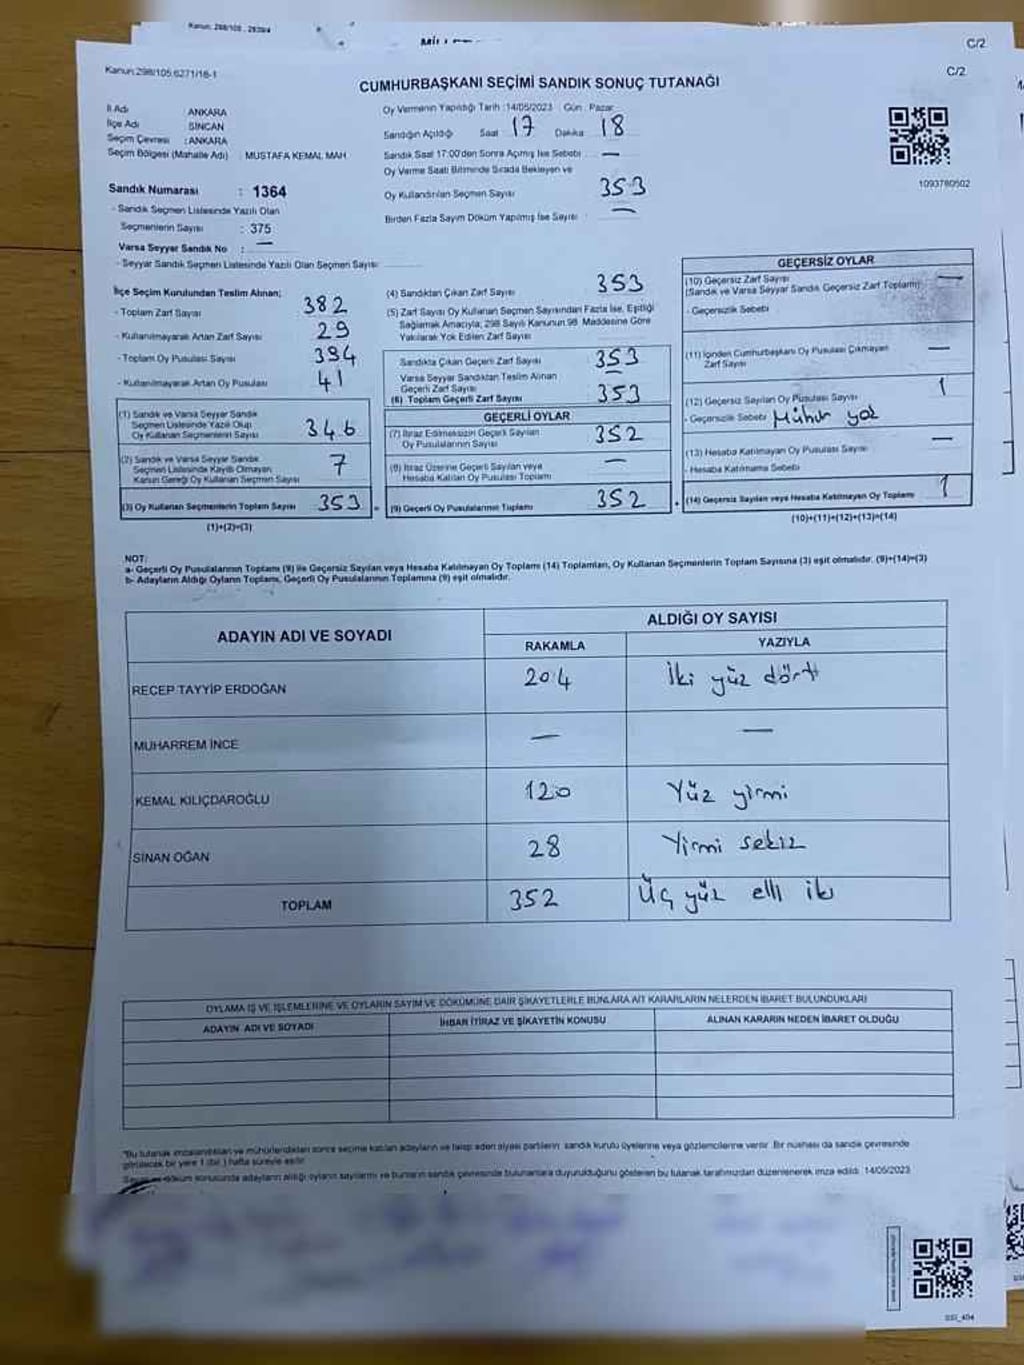 Kanun: 298/105
C/2
Kanun:298/105,6271/16-1
C/2
CUMHURBAŞKANI SEÇİMİ SANDIK SONUÇ TUTANAĞI
İl Adı : ANKARA
İlçe Adı : SİNCAN
Seçim Çevresi : ANKARA
Seçim Bölgesi (Mahalle Adı) : MUSTAFA KEMAL MAH.
Oy Vermenin Yapıldığı Tarih :14/05/2023 Gün : Pazar
Sandığın Açıldığı Saat 17 Dakika 18
Sandık Saat 17:00'den Sonra Açılmış İse Sebebi : —
Oy Verme Saati Bitiminde Sırada Bekleyen ve
Oy Kullandırılan Seçmen Sayısı 353
Birden Fazla Sayım Döküm Yapılmış İse Sayısı : —
1093780502
Sandık Numarası : 1364
- Sandık Seçmen Listesinde Yazılı Olan
Seçmenlerin Sayısı : 375
Varsa Seyyar Sandık No : —
- Seyyar Sandık Seçmen Listesinde Yazılı Olan Seçmen Sayısı:
İlçe Seçim Kurulundan Teslim Alınan;
- Toplam Zarf Sayısı 382
- Kullanılmayarak Artan Zarf Sayısı 29
- Toplam Oy Pusulası Sayısı 394
- Kullanılmayarak Artan Oy Pusulası 41
(1) Sandık ve Varsa Seyyar Sandık
Seçmen Listesinde Yazılı Olup
Oy Kullanan Seçmenlerin Sayısı 346
(2) Sandık ve Varsa Seyyar Sandık
Seçmen Listesinde Kayıtlı Olmayan
Kanun Gereği Oy Kullanan Seçmen Sayısı 7
(3) Oy Kullanan Seçmenlerin Toplam Sayısı 353
(1)+(2)=(3)
(4) Sandıktan Çıkan Zarf Sayısı 353
(5) Zarf Sayısı Oy Kullanan Seçmen Sayısından Fazla İse, Eşitliği
Sağlamak Amacıyla; 298 Sayılı Kanunun 98. Maddesine Göre
Yakılarak Yok Edilen Zarf Sayısı —
Sandıkta Çıkan Geçerli Zarf Sayısı 353
Varsa Seyyar Sandıktan Teslim Alınan
Geçerli Zarf Sayısı —
(6) Toplam Geçerli Zarf Sayısı 353
GEÇERLİ OYLAR
(7) İtiraz Edilmeksizin Geçerli Sayılan
Oy Pusulalarının Sayısı 352
(8) İtiraz Üzerine Geçerli Sayılan veya
Hesaba Katılan Oy Pusulası Toplamı —
(9) Geçerli Oy Pusulalarının Toplamı 352
GEÇERSİZ OYLAR
(10) Geçersiz Zarf Sayısı —
(Sandık ve Varsa Seyyar Sandık Geçersiz Zarf Toplamı)
- Geçersizlik Sebebi
(11) İçinden Cumhurbaşkanı Oy Pusulası Çıkmayan
Zarf Sayısı —
(12) Geçersiz Sayılan Oy Pusulası Sayısı 1
- Geçersizlik Sebebi Mühür yok
(13) Hesaba Katılmayan Oy Pusulası Sayısı —
- Hesaba Katılmama Sebebi
(14) Geçersiz Sayılan veya Hesaba Katılmayan Oy Toplamı 1
(10)+(11)+(12)+(13)=(14)
NOT:
a- Geçerli Oy Pusulalarının Toplamı (9) ile Geçersiz Sayılan veya Hesaba Katılmayan Oy Toplamı (14) Toplamları, Oy Kullanan Seçmenlerin Toplam Sayısına (3) eşit olmalıdır. (9)+(14)=(3)
b- Adayların Aldığı Oyların Toplamı, Geçerli Oy Pusulalarının Toplamına (9) eşit olmalıdır.
ADAYIN ADI VE SOYADI
ALDIĞI OY SAYISI
RAKAMLA YAZIYLA
RECEP TAYYİP ERDOĞAN 204 İki yüz dört
MUHARREM İNCE — —
KEMAL KILIÇDAROĞLU 120 Yüz yirmi
SİNAN OĞAN 28 Yirmi sekiz
TOPLAM 352 Üç yüz elli iki
OYLAMA İŞ VE İŞLEMLERİNE VE OYLARIN SAYIM VE DÖKÜMÜNE DAİR ŞİKAYETLERLE BUNLARA AİT KARARLARIN NELERDEN İBARET BULUNDUKLARI
ADAYIN ADI VE SOYADI İHBAR İTİRAZ VE ŞİKAYETİN KONUSU ALINAN KARARIN NEDEN İBARET OLDUĞU
*Bu tutanak imzalandıktan ve mühürlendikten sonra seçime katılan adayların ve talep eden siyasi partilerin sandık kurulu üyelerine veya gözlemcilerine verilir. Bir nüshası da sandık çevresinde
görülecek bir yere 1 (bir) hafta süreyle asılır.
Sayım ve döküm sonucunda adayların aldığı oyların sayılarını ve bunların sandık çevresinde bulunanlara duyurulduğunu gösteren bu tutanak tarafımızdan düzenlenerek imza edildi. 14/05/2023
SSI_404